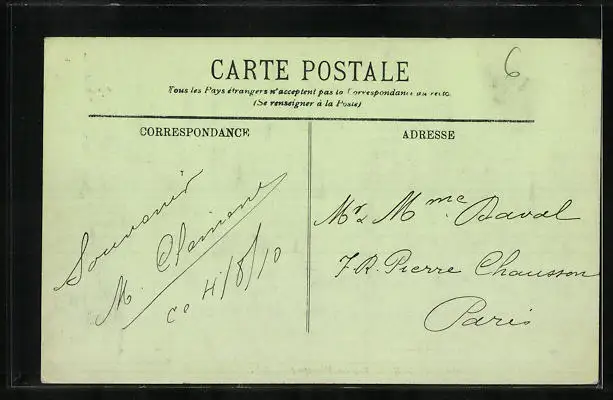 6
CARTE POSTALE
Tous les Pays étrangers n'acceptent pas la Correspondance au recto.
(Se renseigner à la Poste)
CORRESPONDANCE
ADRESSE
Souvenir
M.
ce 4/8/10
Mr & Mme Daval
7 R. Pierre Chausson
Paris